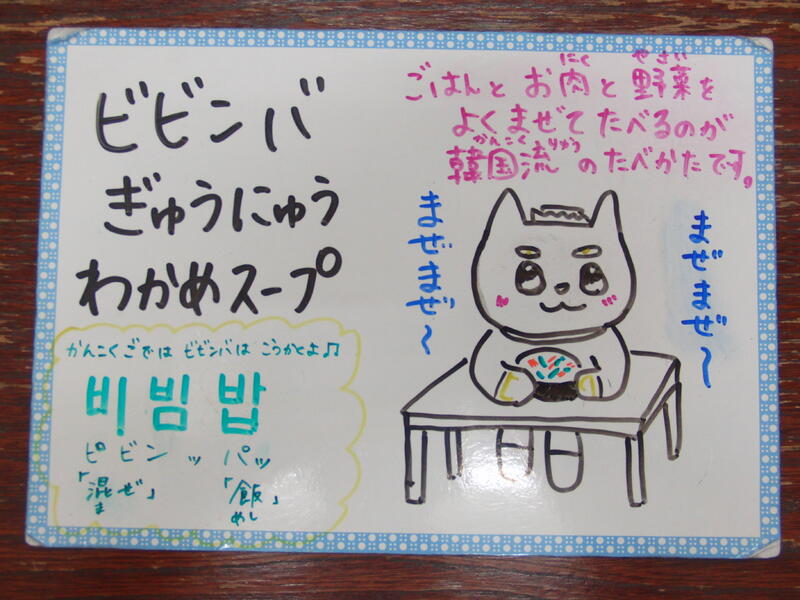 ビビンバ
ぎゅうにゅう
わかめスープ
にく やさい
ごはんとお肉と野菜を
よくまぜてたべるのが
かんこくりゅう
韓国流のたべかたです。
まぜまぜ〜
まぜまぜ〜
かんこくごでは ビビンバは こうかくよ♫
비빔밥
ピビンッパッ
「混ぜ」 「飯」
ま めし